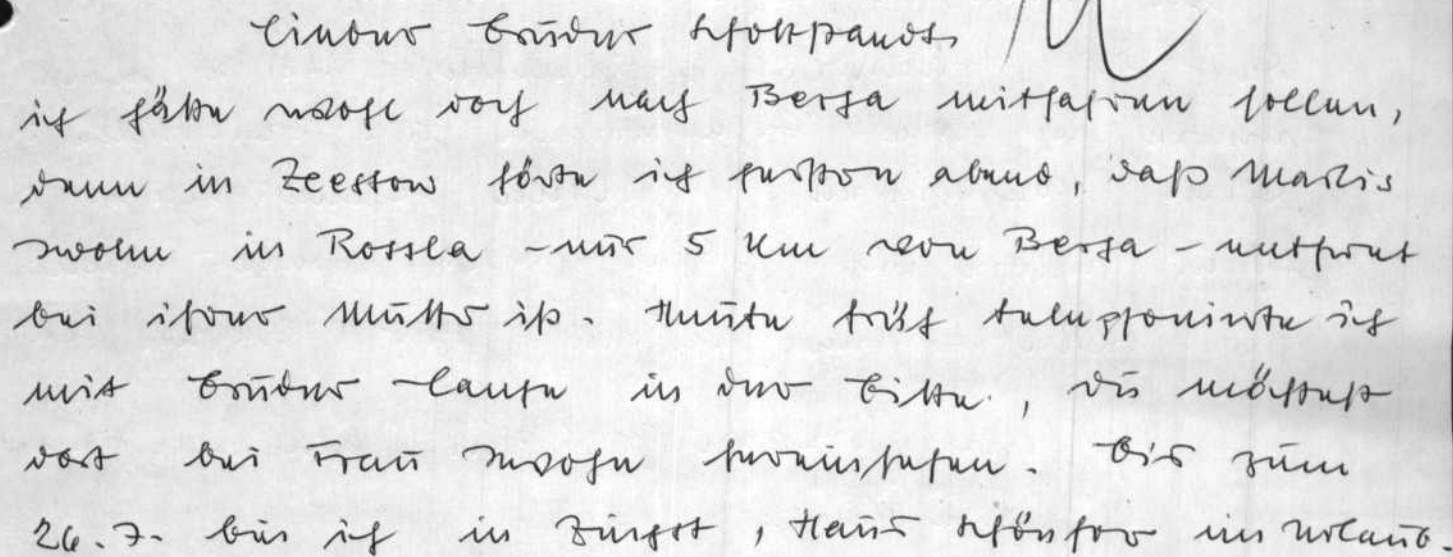 Lieber Bruder Schottstaedt,
ich hätte wohl doch nach Berga mitfahren sollen,
denn in Zeestow hörte ich gestern abend, daß Marlis
in Rossla - nur 5 km von Berga - entfernt
bei ihrer Mutter ist. Heute früh telephonierte ich
mit Bruder Lange in der Bitte, Du möchtest
dort bei Frau hereinsehen. Bis zum
26.7. bin ich in Zingst, Hans Schönherr im Urlaub.